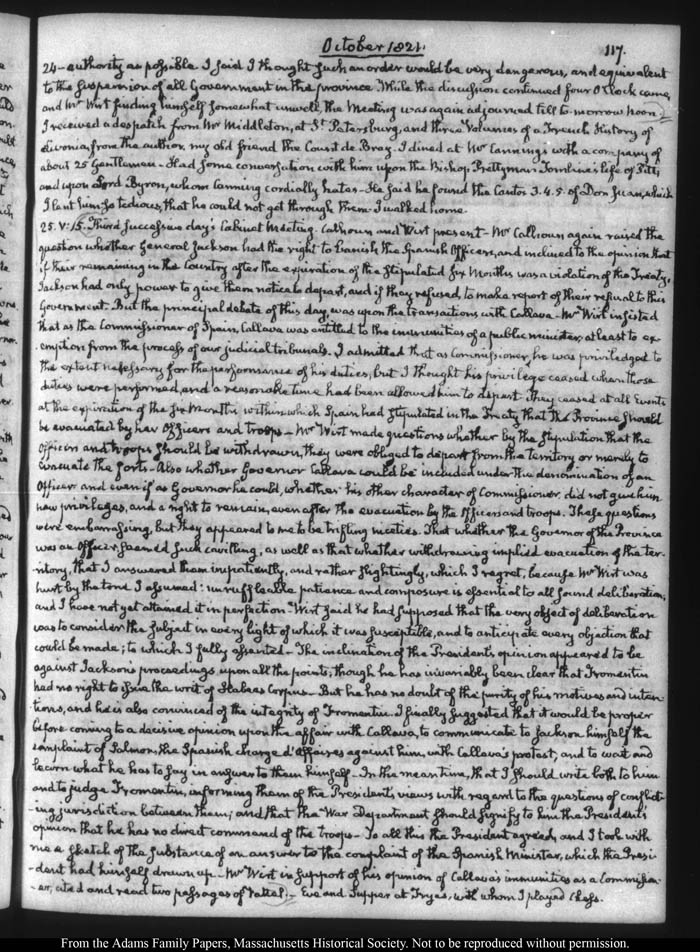 October 1821.
117.
24 - authority as possible I said I thought such an order would be very dangerous, and equivalent
to the suspension of all Government in the province. While the discussion continued four O'clock came,
and Mr Wirt finding himself somewhat unwell, the Meeting was again adjourned till to-morrow Noon.
I received a despatch from Mr Middleton, at St Petersburg, and three Volumes of a French History of
Livonia, from the author, my old friend the Count de Bray. I dined at Mr Canning's with a company of
about 25 Gentlemen - Had some conversation with him upon the Bishop Prettyman Tomline's life of Pitt,
and upon Lord Byron, whom Canning cordially hates - He said he found the Cantos 3. 4. 5 of Don Juan, which
I lent him so tedious, that he could not get through them. I walked home.
25. V:15. Third successive day's Cabinet Meeting. Calhoun and Wirt present - Mr Calhoun again raised the
question whether General Jackson had the right to banish the Spanish Officers, and inclined to the opinion that
if their remaining in the Country after the expiration of the stipulated six Months was a violation of the Treaty,
Jackson had only power to give them notice to depart, and if they refused, to make report of their refusal to this
Government. But the principal debate of this day, was upon the transactions with Callava - Mr Wirt insisted
that as the Commissioner of Spain, Callava was entitled to the immunities of a public minister, at least to ex-
emption from the process of our judicial tribunals. I admitted that as Commissioner, he was priviledged to
the extent necessary for the performance of his duties, but I thought his privilege ceased when those
duties were performed, and a reasonable time had been allowed him to depart. They ceased at all Events
at the expiration of the six Months within which Spain had stipulated in the Treaty that the Province should
be evacuated by her Officers and troops - Mr Wirt made questions whether by the stipulation that the
Officers and troops should be withdrawn, they were obliged to depart from the territory or merely to
evacuate the forts - Also whether Governor Callava could be included under the denomination of an
Officer and even if as Governor he could, whether his other character of Commissioner did not give him
new privileges, and a right to remain, even after the evacuation by the Officers and troops. These questions
were embarrassing, but they appeared to me to be trifling niceties. That whether the Governor of the Province
was an Officer, seemed such cavilling, as well as that whether withdrawing implied evacuation of the ter-
ritory, that I answered them impatiently, and rather slightingly, which I regret, because Mr Wirt was
hurt by the tone I assumed: unruffleable patience and composure is essential to all sound deliberation,
and I have not yet attained it in perfection. Wirt said he had supposed that the very object of deliberation
was to consider the subject in every light of which it was susceptible, and to anticipate every objection that
could be made; to which I fully assented - The inclination of the President's opinion appeared to be
against Jackson's proceedings upon all the points, though he has invariably been clear that Fromentin
had no right to issue the writ of Habeas Corpus. But he has no doubt of the purity of his motives and inten-
tions, and he is also convinced of the integrity of Fromentin. I finally suggested that it would be proper
before coming to a decisive opinion upon the affair with Callava, to communicate to Jackson himself the
complaint of Salmon, the Spanish charge d'affaires against him, with Callava's protest, and to wait and
learn what he has to say in answer to them himself - In the mean time, that I should write both to him
and to judge Fromentin, informing them of the President's views with regard to the questions of conflict-
ing jurisdiction between them; and that the War Department should signify to him the President's
opinion that he has no direct command of the troops - To all this the President agreed, and I took with
me a sketch of the substance of an answer to the complaint of the Spanish Minister, which the Presi-
dent had himself drawn up - Mr Wirt in support of his opinion of Callava's immunities as a Commission-
er, cited and read two passages of Vattel. - Eve and Supper at Frye's, with whom I played Chess.
From the Adams Family Papers, Massachusetts Historical Society. Not to be reproduced without permission.